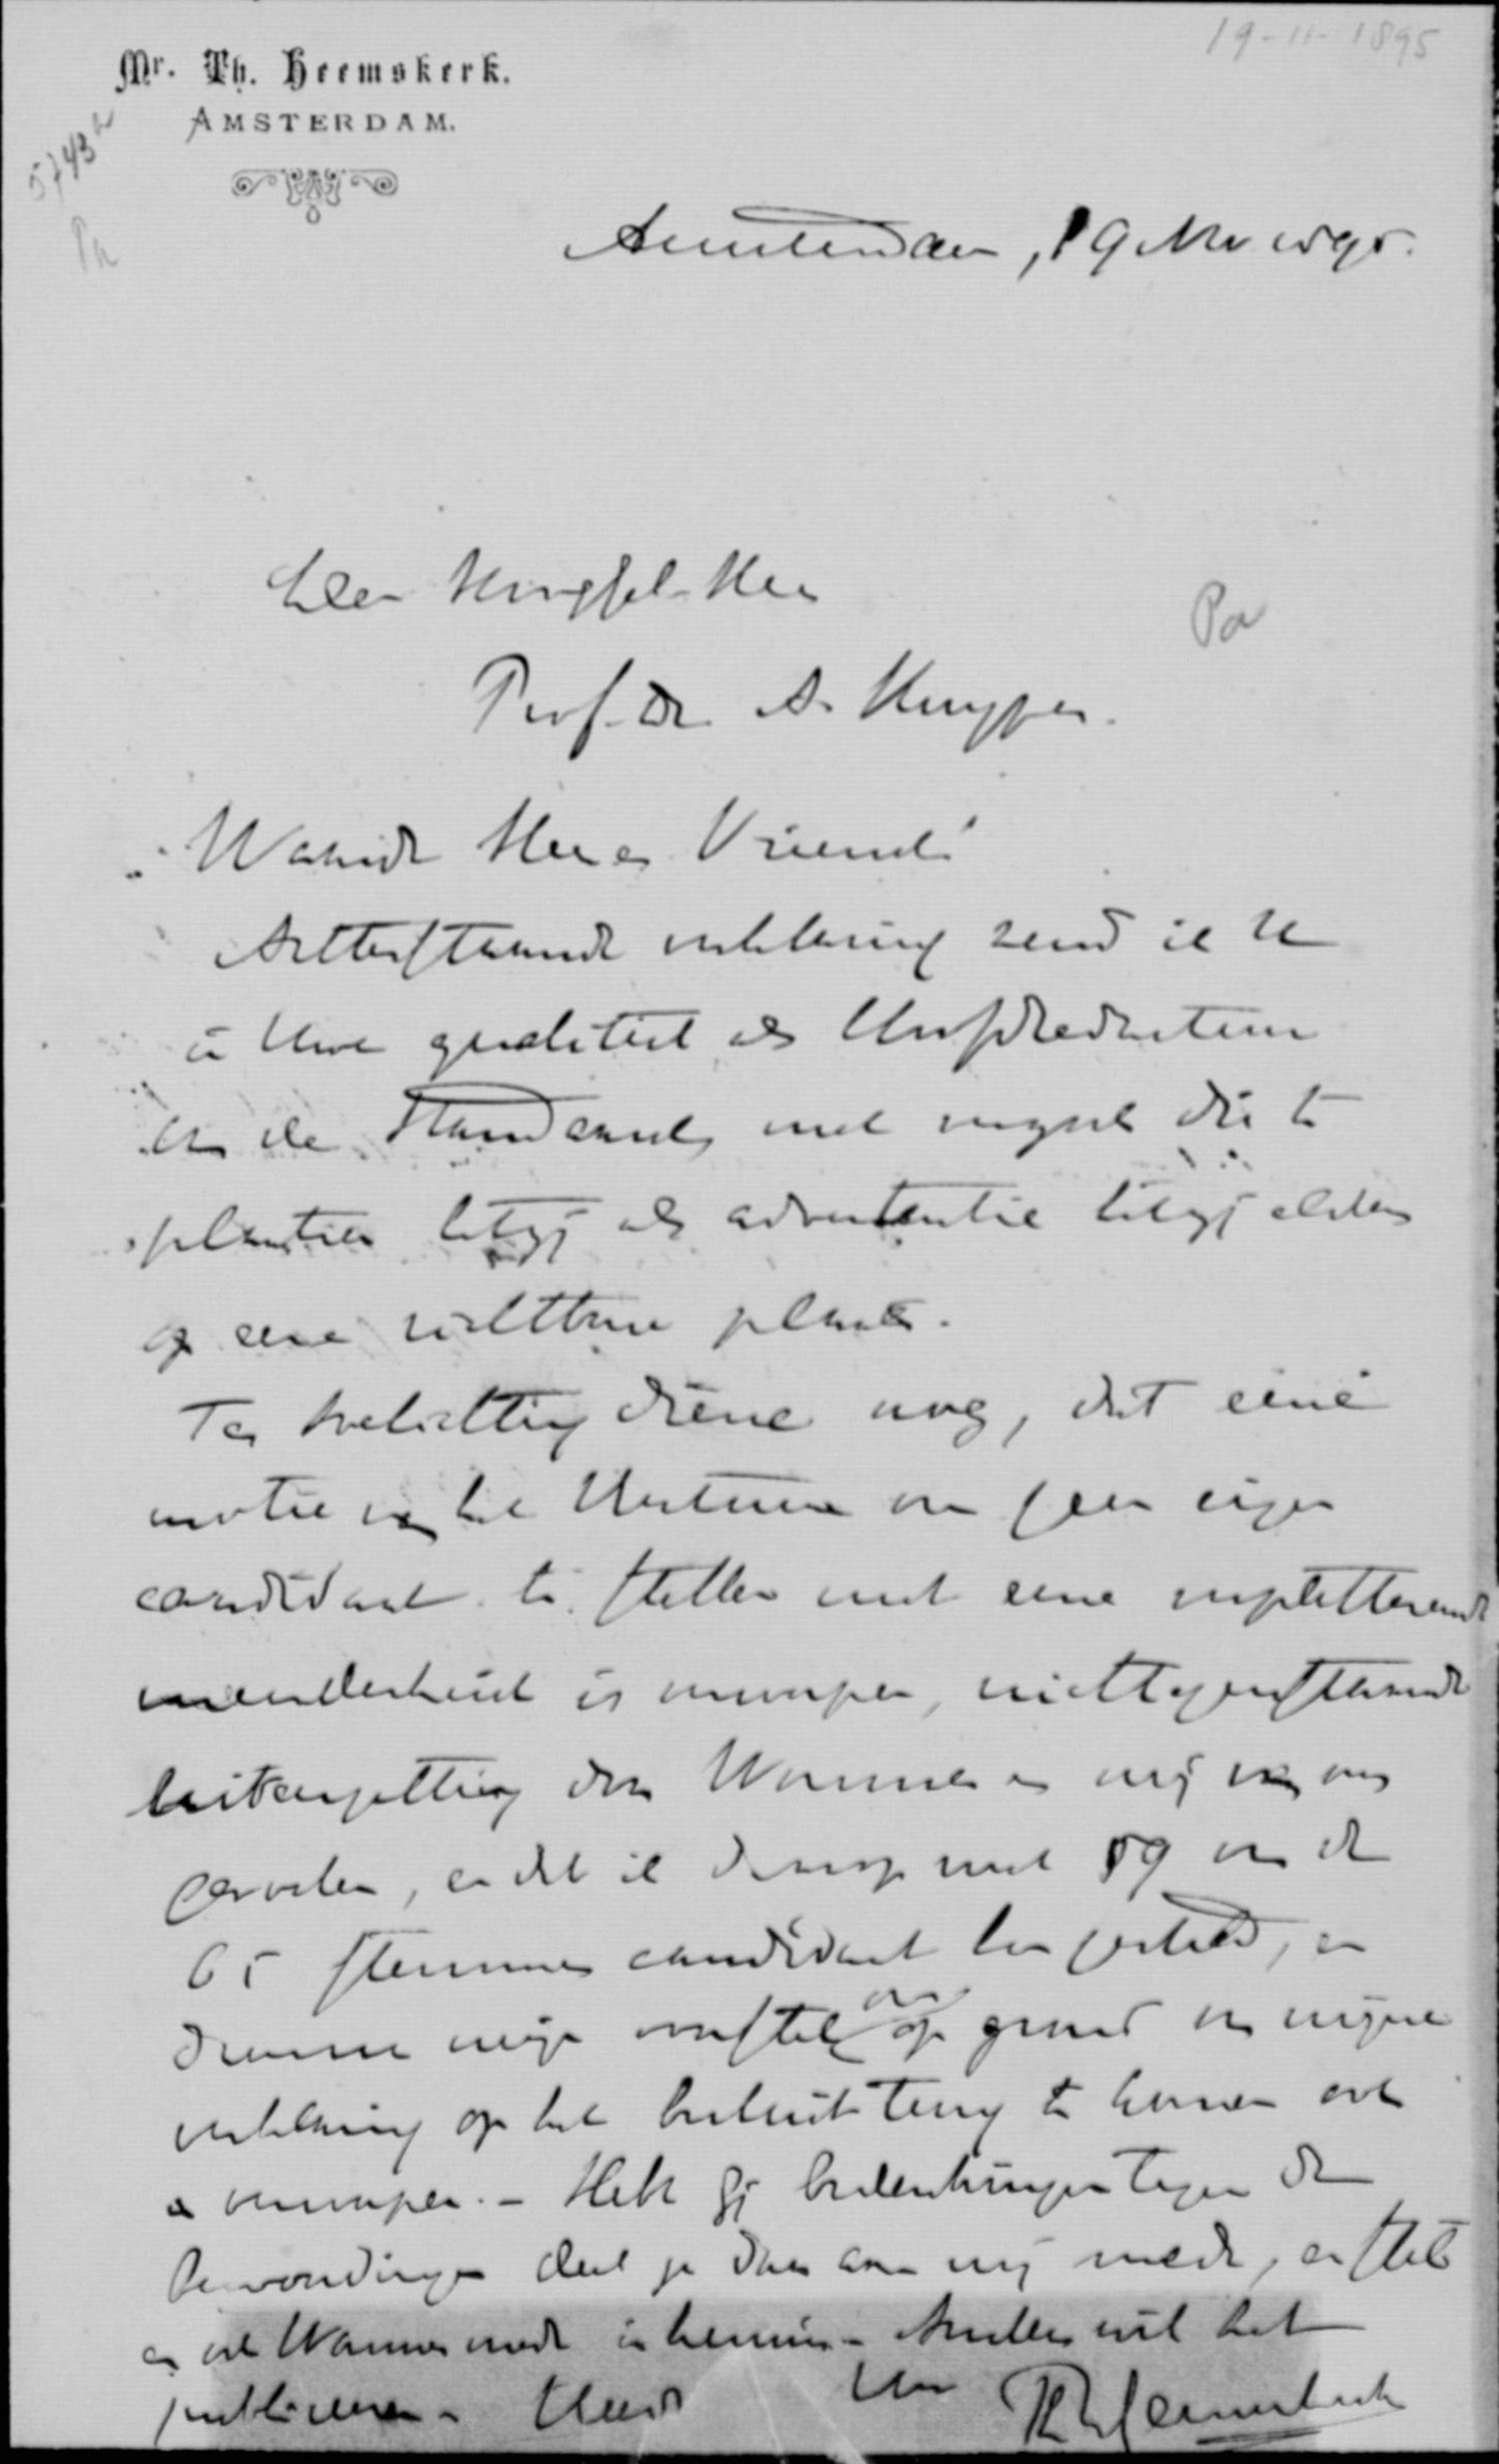 19-11-1895
Mr. Th. Heemskerk.
AMSTERDAM.
5743
Pa
Amsterdam, 19 Nov 1895.
Den Hooggel. Heer
Pa
Prof. Dr A. Kuyper.
Waarde Heer en Vriend!
Achterstaande verklaring zend ik U
in Uwe qualiteit als Hoofdredacteur
van de Standaard, met verzoek die te
plaatsen hetzij als advertentie hetzij elders
op eene zichtbare plaats.
Ter toelichting diene nog, dat eene
motie van het Bestuur om geen eigen
candidaat te stellen met eene verpletterende
meerderheid is verworpen, niettegenstaande
uiteenzetting door Wormser en mij van ons
gevoelen, en dat ik daarop met 59 van de
65 stemmen candidaat ben gesteld, en
daarna mijn voorstel om op grond van mijne
verklaring op het besluit terug te komen ook
is verworpen. - Hebt gij bedenkingen tegen de
bewoordingen deel ze dan aan mij mede, en stel
er ook Wormser mede in kennis. - Anders wil het
publiceeren. - Uw
Th Heemskerk